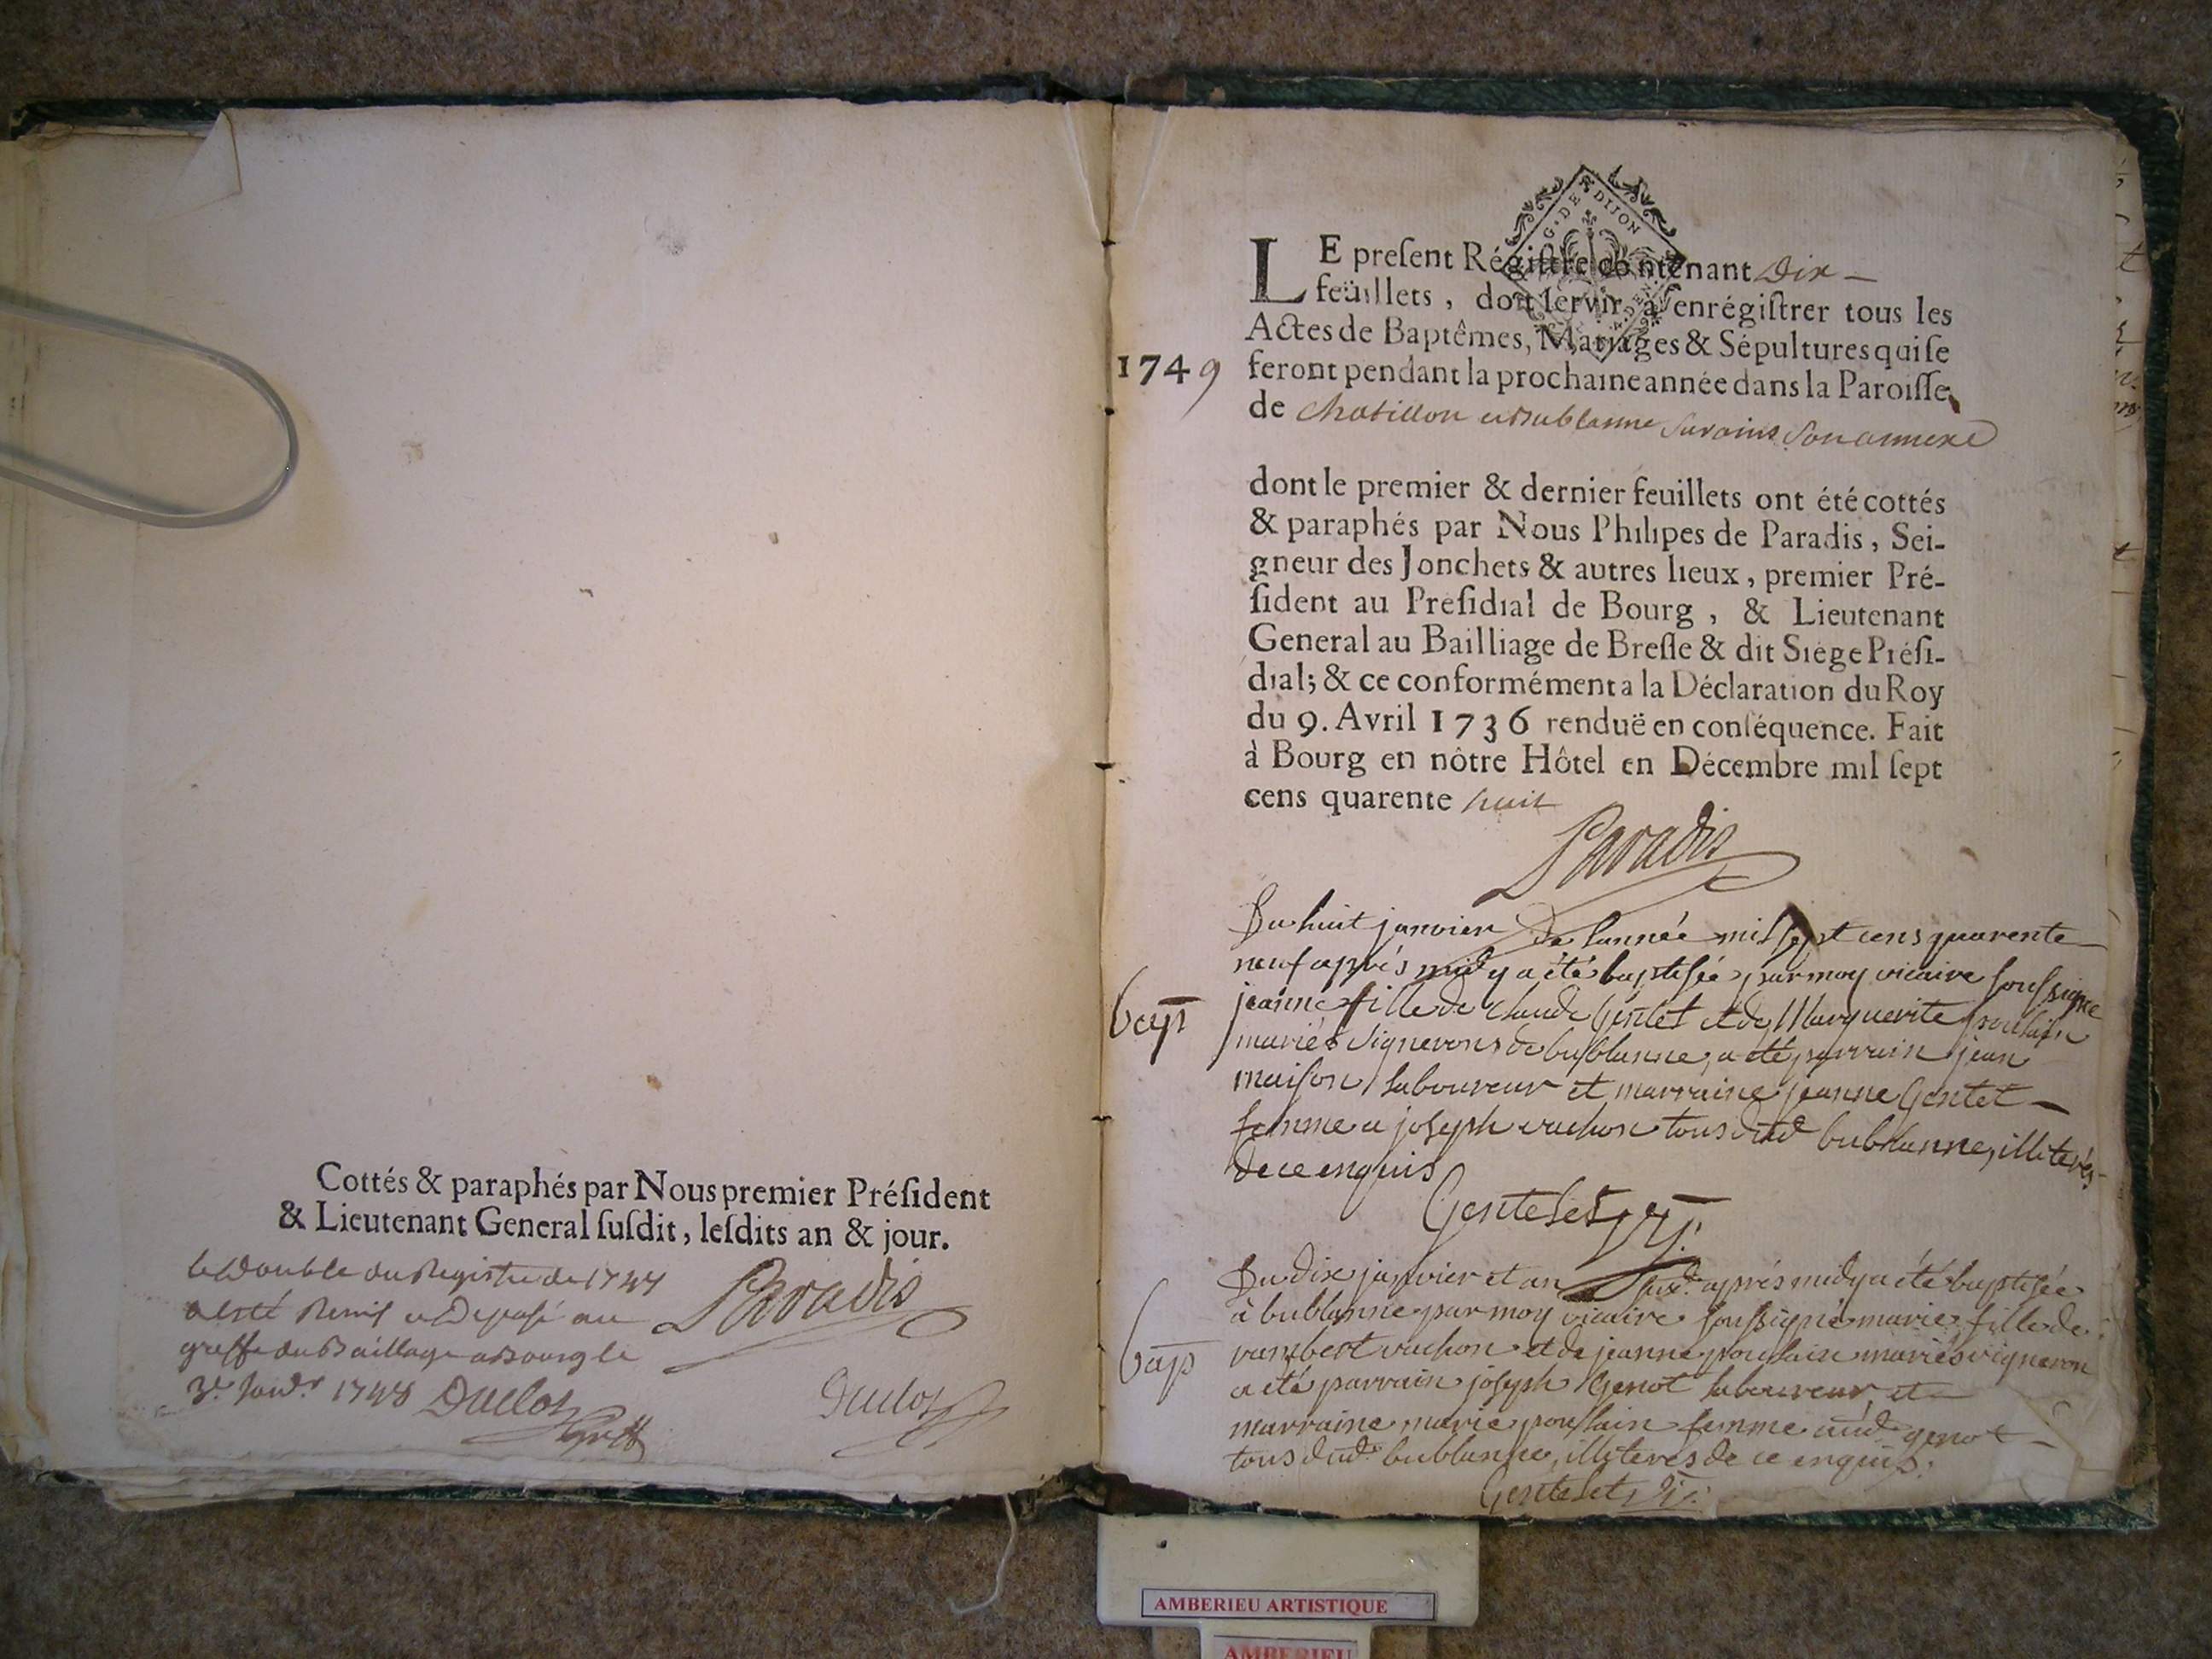 Cottés & paraphés par Nous premier Préſident
& Lieutenant General ſuſdit, leſdits an & jour.
le Double du Registre de 1747
a esté Remis et Deposé au
greffe du Baillage a Bourg le
3e Janvr 1748 Duclos
Paradis
Greff
Duclos
G. DE DIJON
LE preſent Régiſtre contenant Dix
feüillets, doit ſervir à enrégiſtrer tous les
Actes de Baptêmes, Mariages & Sépultures qui ſe
1749 feront pendant la prochaine année dans la Paroiſſe
de Chatillon et Bublanne son annexe
dont le premier & dernier feuillets ont été cottés
& paraphés par Nous Philipes de Paradis, Sei-
gneur des Jonchets & autres lieux, premier Pré-
ſident au Preſidial de Bourg, & Lieutenant
General au Bailliage de Breſſe & dit Siége Préſi-
dial; & ce conformément a la Déclaration du Roy
du 9. Avril 1736 renduë en conſéquence. Fait
à Bourg en nôtre Hôtel en Décembre mil ſept
cens quarente huit
Paradis
Du huit janvier de lannée mil sept cens quarente
neuf après midy a été baptisée par moy vicaire soussigné
bapt jeanne fille de claude Gentet et de Marguerite poulain
mariés vignerons de bublanne, a été parrain jean
maison laboureur et marraine jeanne Gentet
femme a joseph vachon tous dud bublanne, illiterés
de ce enquis
Gentelet
Du dix janvier et an après midy a été baptisée
à bublanne par moy vicaire soussigné marie fille de
bap rambert vachon et de jeanne poulain mariés vigneron
a été parrain joseph Genot laboureur et
marraine marie poulain femme aud genot
tous dud bublanne, illiterés de ce enquis.
Gentelet
AMBERIEU ARTISTIQUE
AMBERIEU